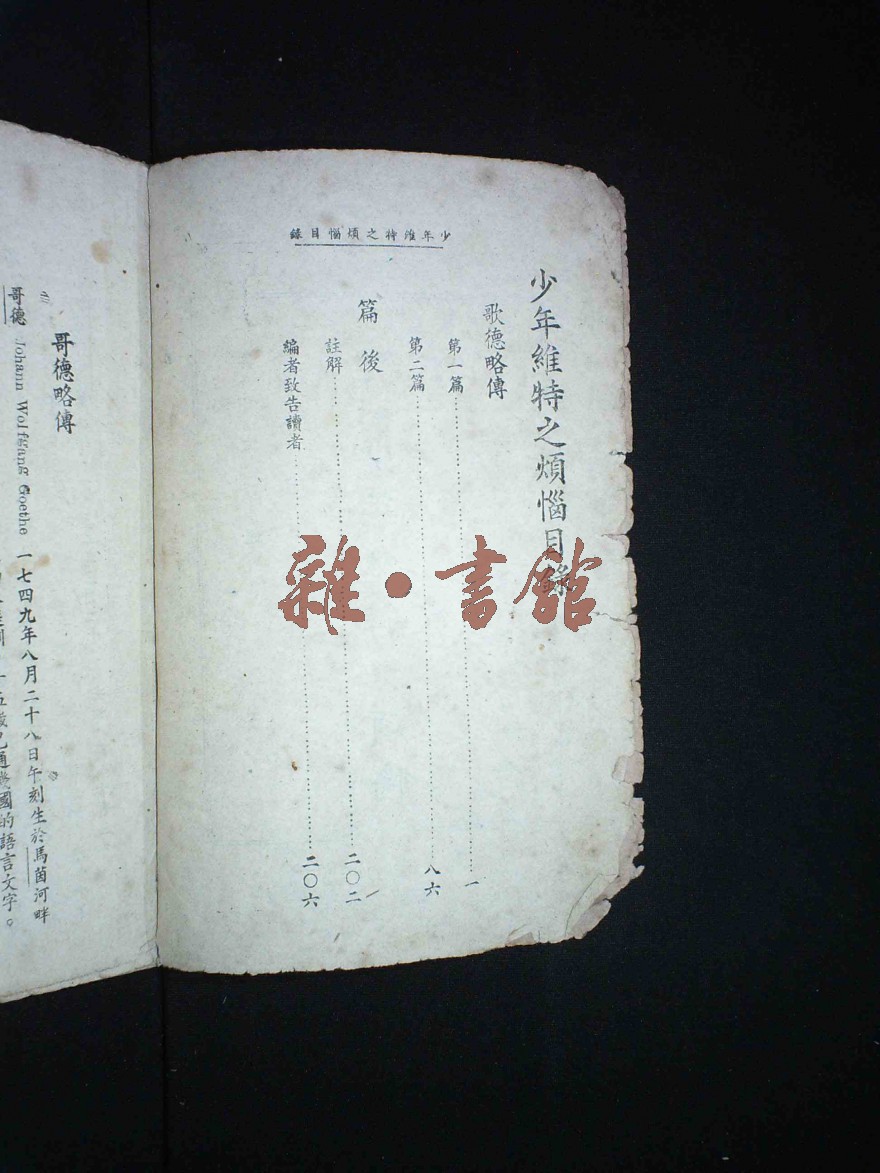 少年維特之煩惱目錄
少年維特之煩惱目錄
歌德略傳
第一篇……一
第二篇……八六
篇後
註解……二〇二
編者致告讀者……二〇六
雜·書館
哥德略傳
哥德 Johann Wolfgang Goethe 一七四九年八月二十八日午刻生於馬茵河畔
五歲已通幾國的語言文字。